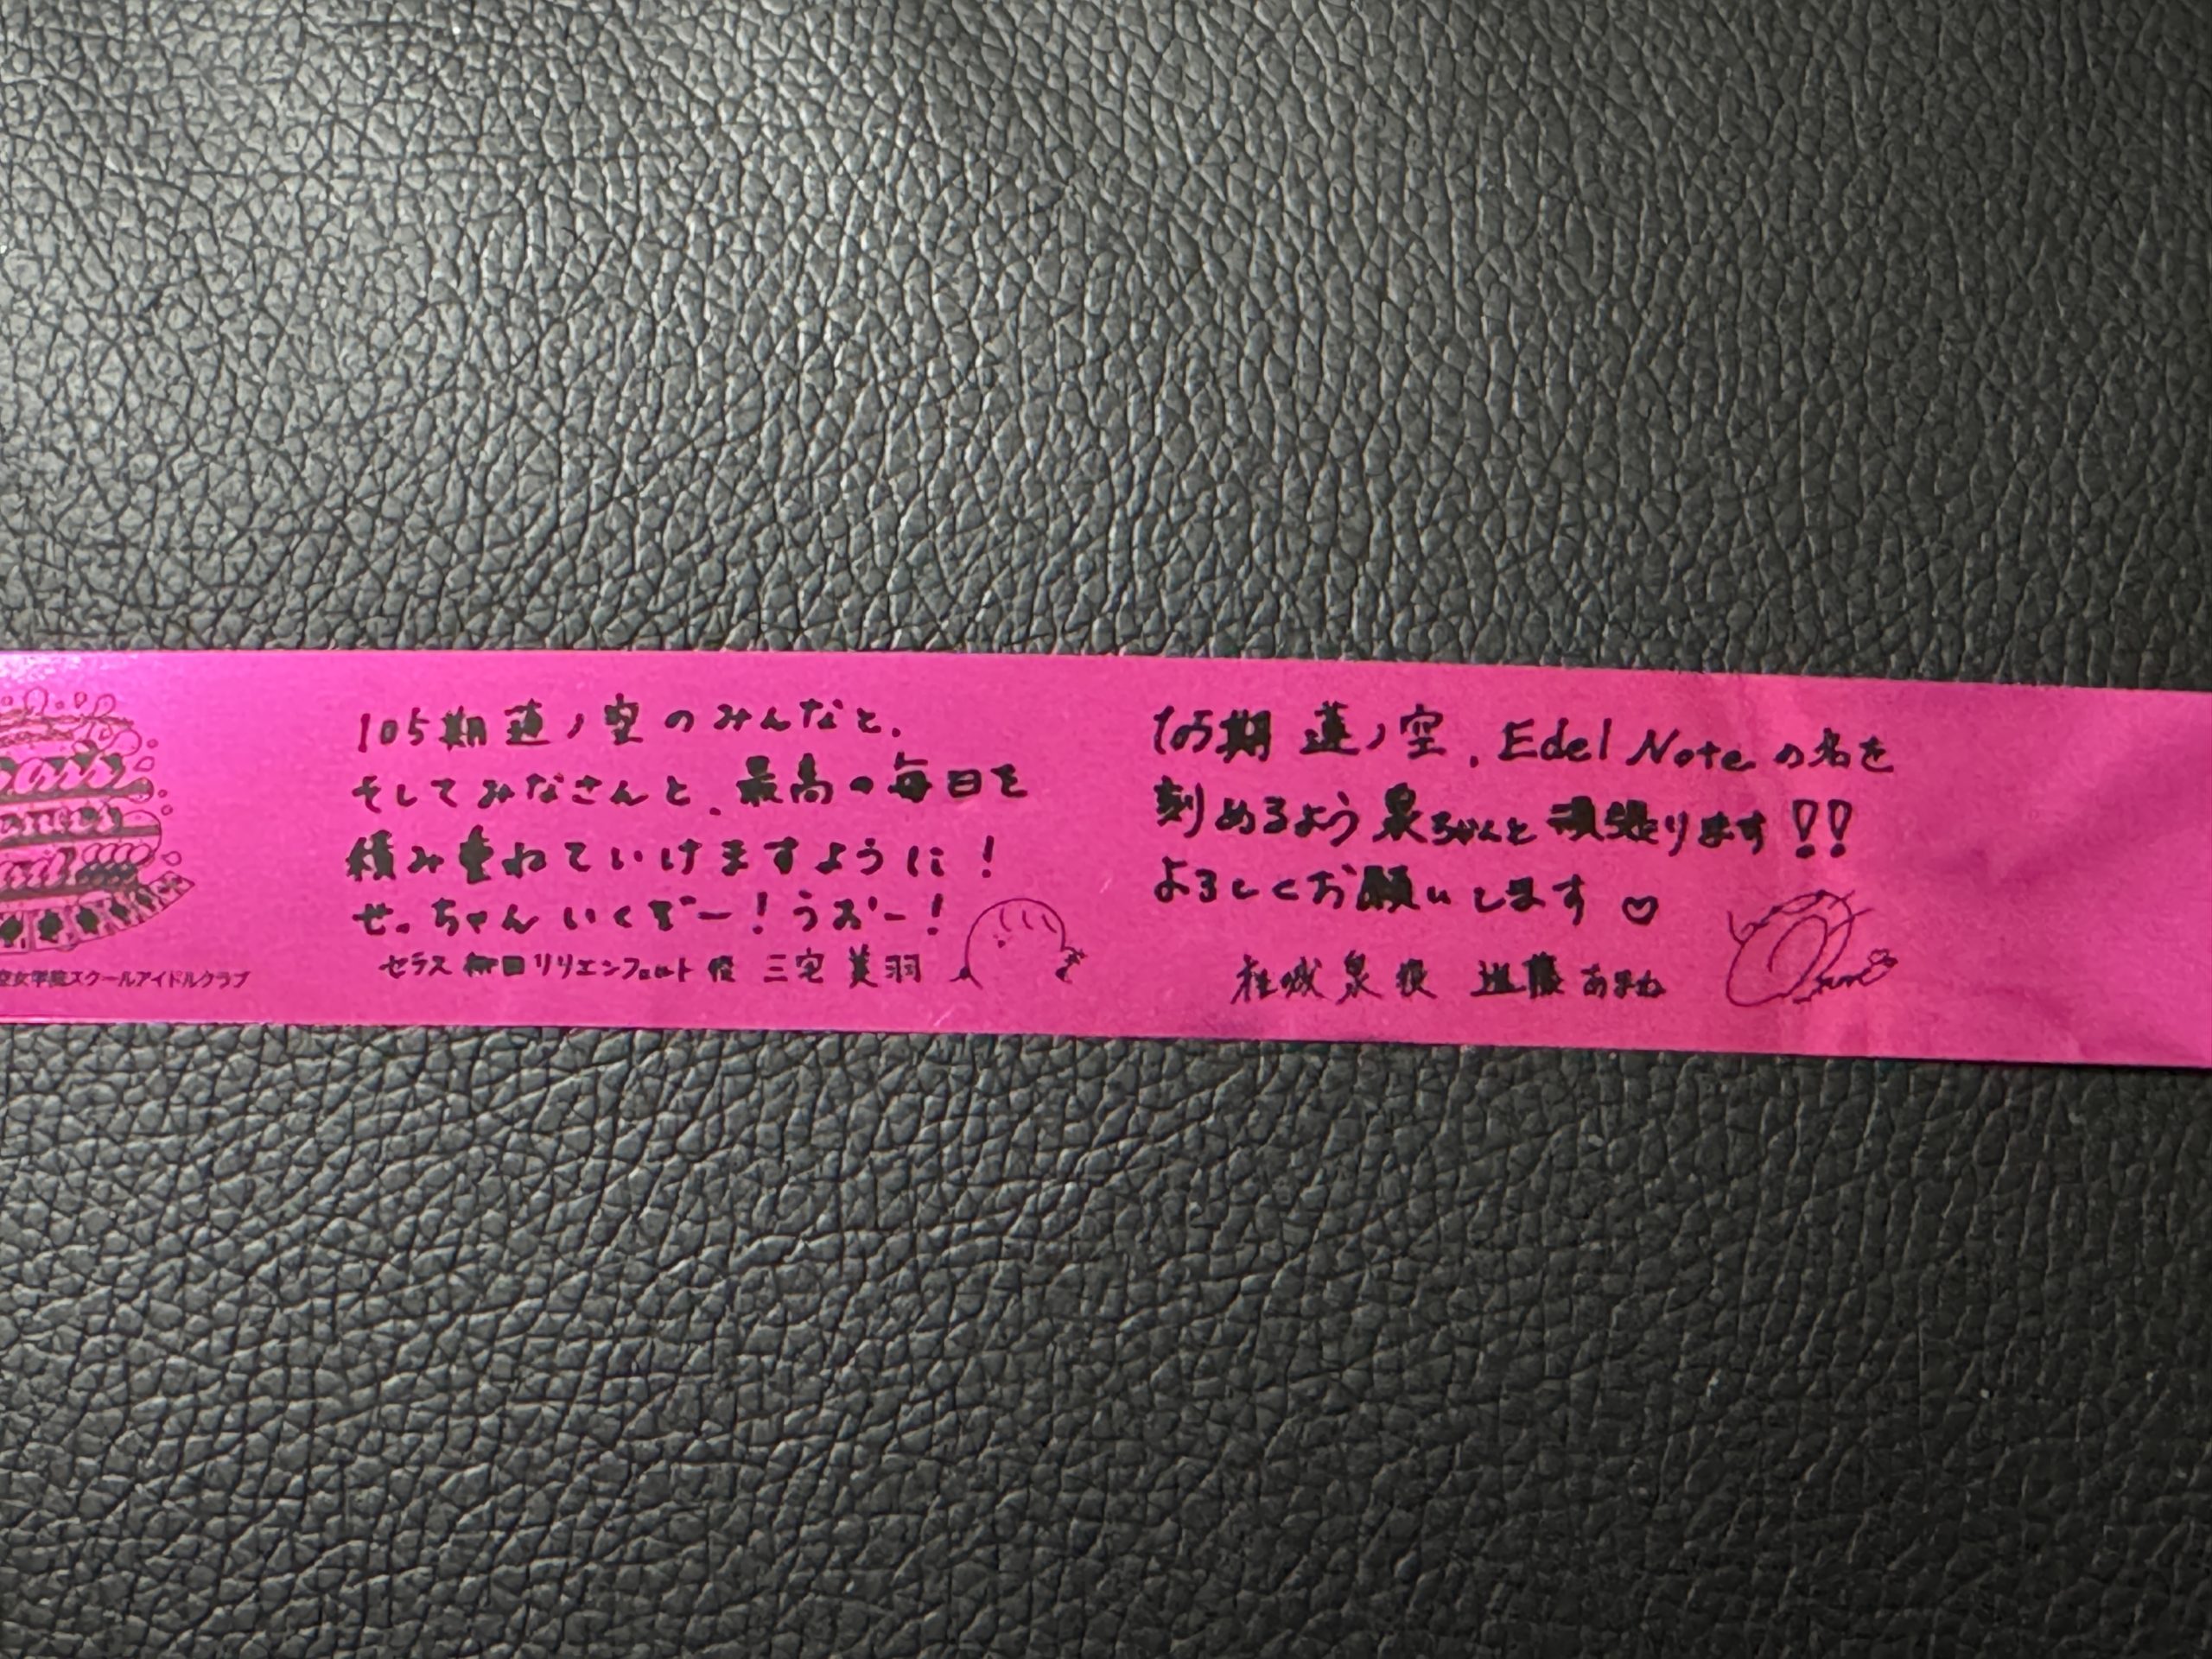 空女学院スクールアイドルクラブ
105期 蓮ノ空のみんなと、
そしてみなさんと、最高の毎日を
積み重ねていけますように!
せっちゃんいくぞー!うおー!
セラス 柳田 リリエンフェルト 役 三宅 美羽
105期 蓮ノ空、Edel Noteの名を
刻めるよう泉ちゃんと頑張ります!!
よろしくお願いします♡
桂城 泉 役 進藤 あまね